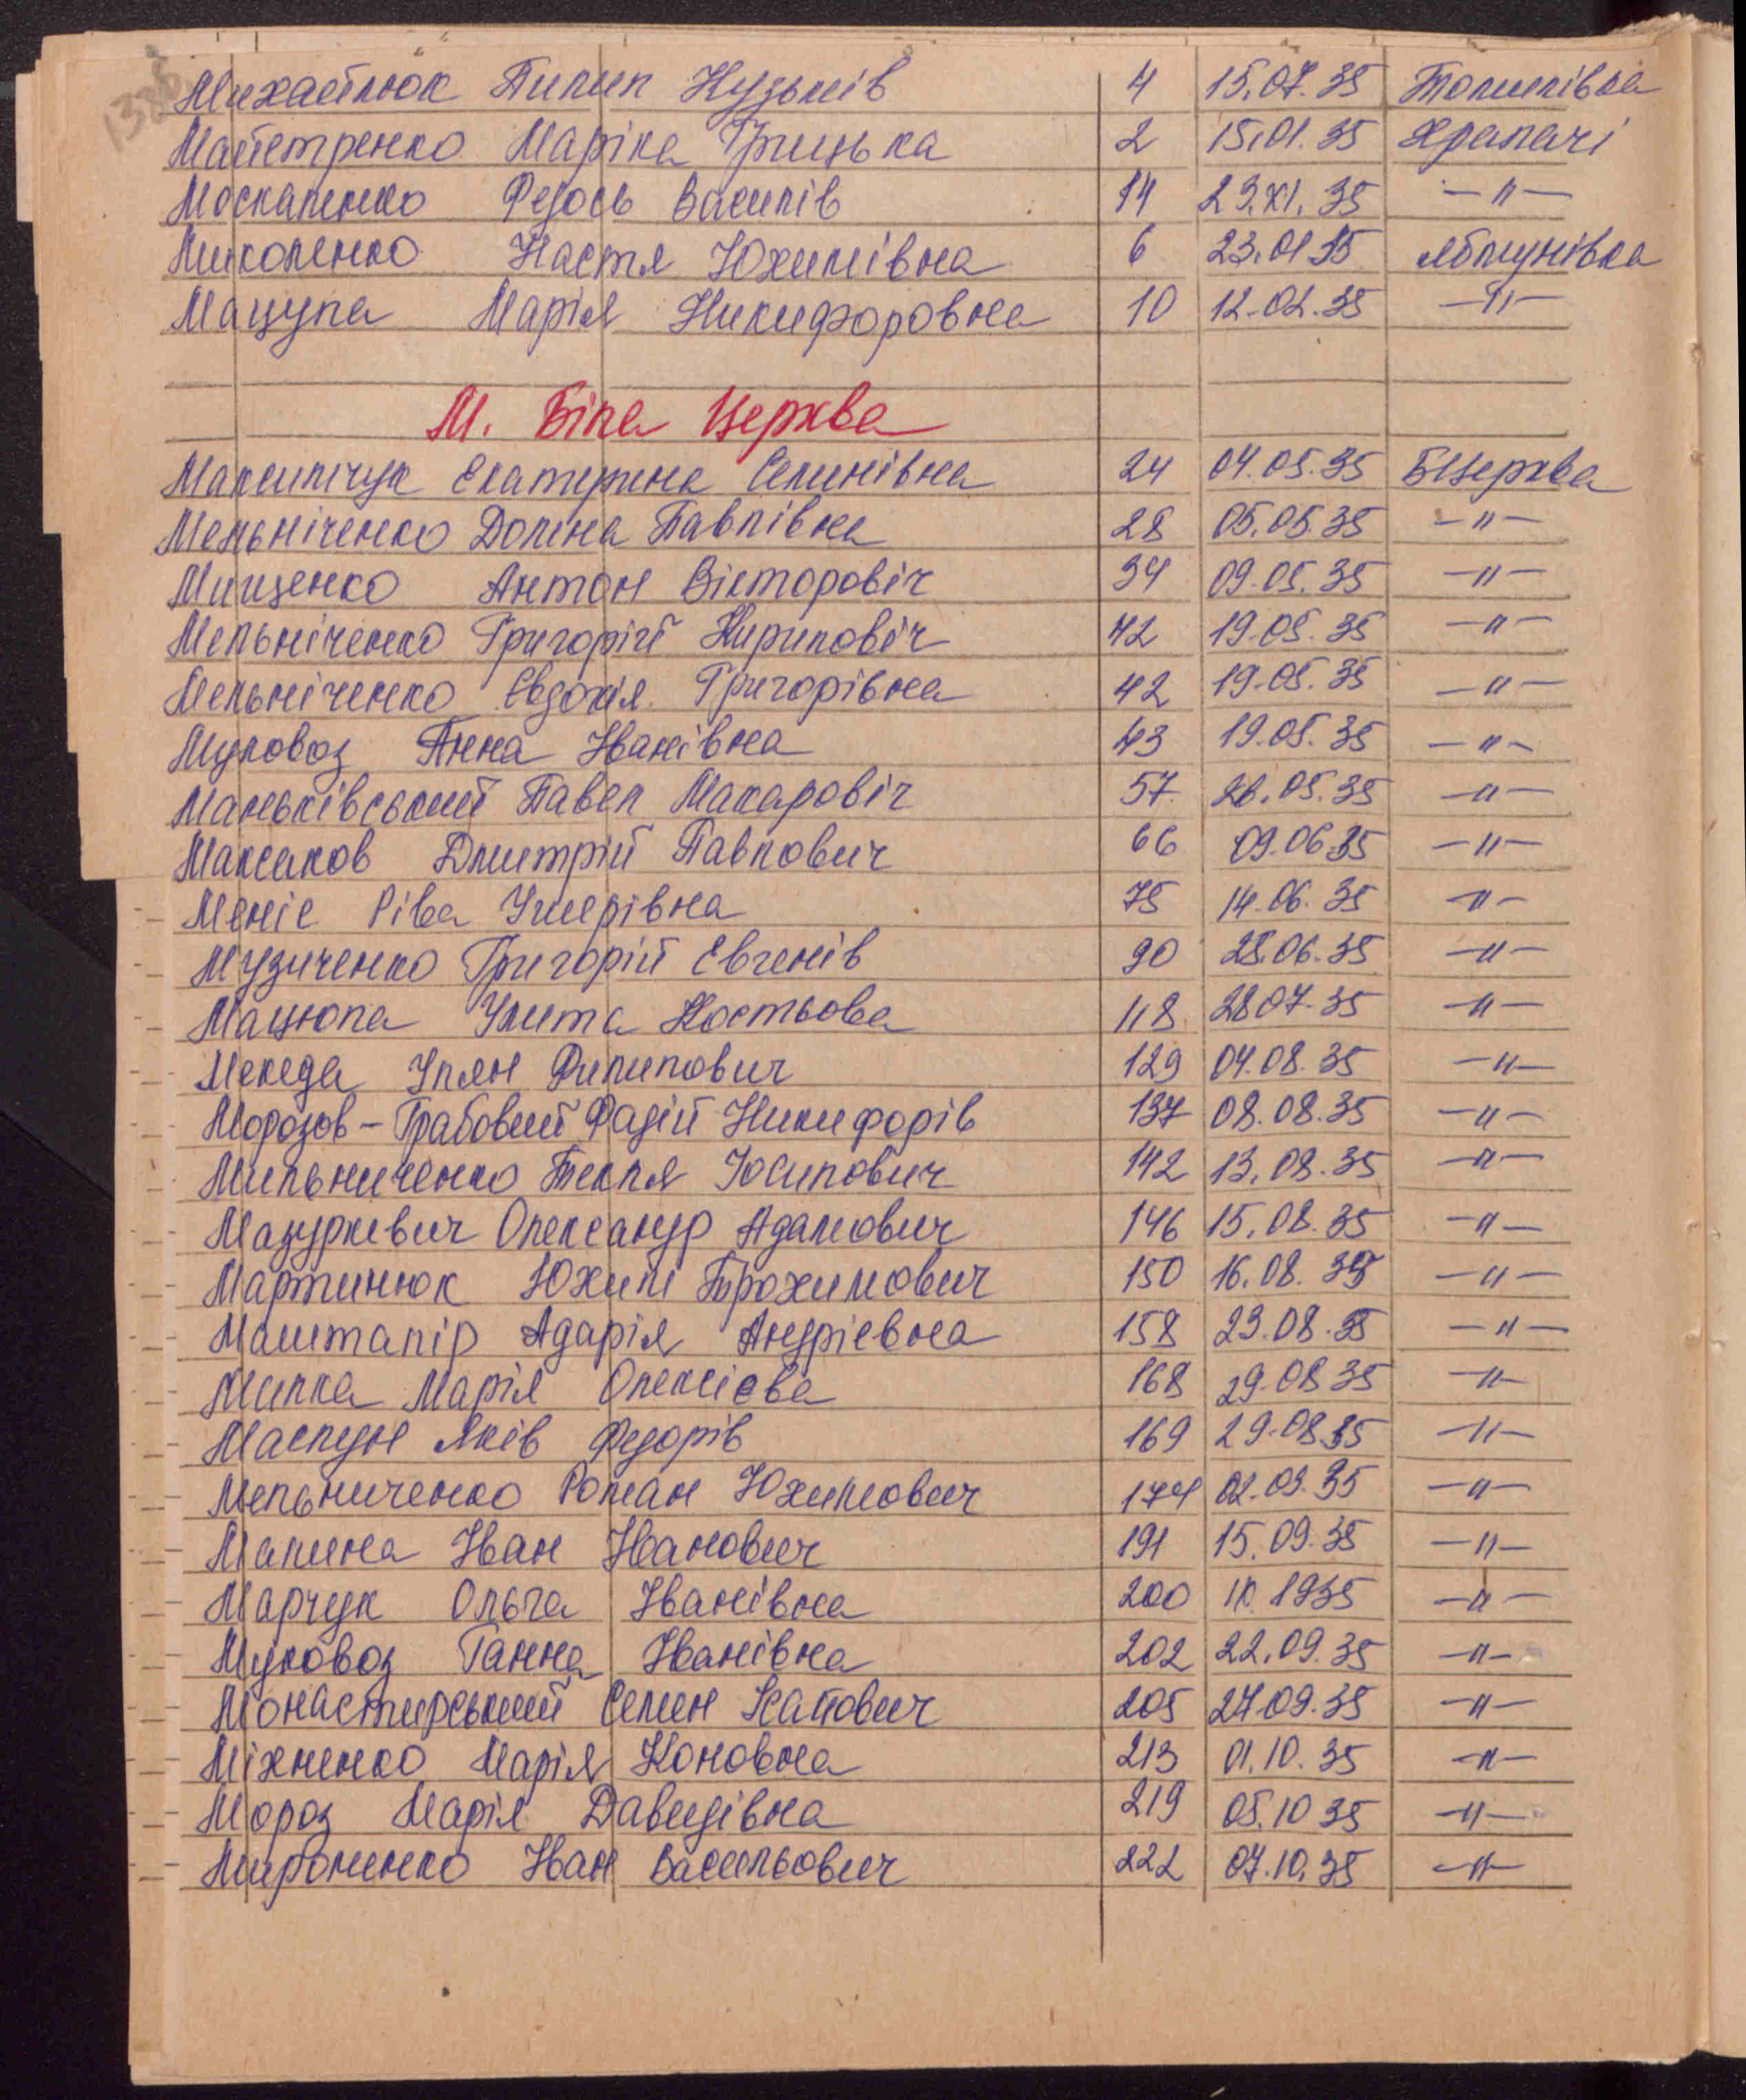 138
Михайлюк Пилип Кузьмів 4 15.07.35 Томилівка
Майстренко Маріка Грицька 2 15.01.35 Храпачі
Москаленко Федось Василів 14 23.XI.35 —"—
Миколенко Настя Юхимівна 6 23.01.35 Яблунівка
Мацупа Марія Никифоровна 10 12.02.35 —"—
М. Біла Церква
Максимчук Екатерина Семинівна 24 04.05.35 БЦерква
Мельніченко Доміна Павлівна 28 05.05.35 —"—
Мищенко Антон Вікторовіч 34 09.05.35 —"—
Мельніченко Григорій Кириловіч 42 19.05.35 —"—
Мельніченко Евдокія Григорівна 42 19.05.35 —"—
Муковоз Анна Іванівна 43 19.05.35 —"—
Маньківський Павел Макаровіч 57 26.05.35 —"—
Максаков Дмитрій Павлович 66 09.06.35 —"—
Меніс Ріва Умерівна 75 14.06.35 —"—
Музиченко Григорій Евгенів 90 28.06.35 —"—
Мацюпа Улита Костьова 118 28.07.35 —"—
Мекеда Улян Филипович 129 04.08.35 —"—
Морозов-Грабовий Фадій Никифорів 137 08.08.35 —"—
Мильниченко Текля Юсипович 142 13.08.35 —"—
Мазуркевич Олександр Адамович 146 15.08.35 —"—
Мартинюк Юхим Трохимович 150 16.08.35 —"—
Машталір Адарія Андріевна 158 23.08.35 —"—
Милка Марія Олексієва 168 29.08.35 —"—
Маслун Яків Федорів 169 29.08.35 —"—
Мельниченко Роман Юхимович 174 02.09.35 —"—
Малина Іван Іванович 191 15.09.35 —"—
Марчук Ольга Іванівна 200 IX.1935 —"—
Муковоз Ганна Іванівна 202 22.09.35 —"—
Монастирський Семен Ісайович 205 27.09.35 —"—
Міхненко Марія Коновна 213 01.10.35 —"—
Мороз Марія Давидівна 219 05.10.35 —"—
Мироненко Іван Васильович 222 07.10.35 —"—